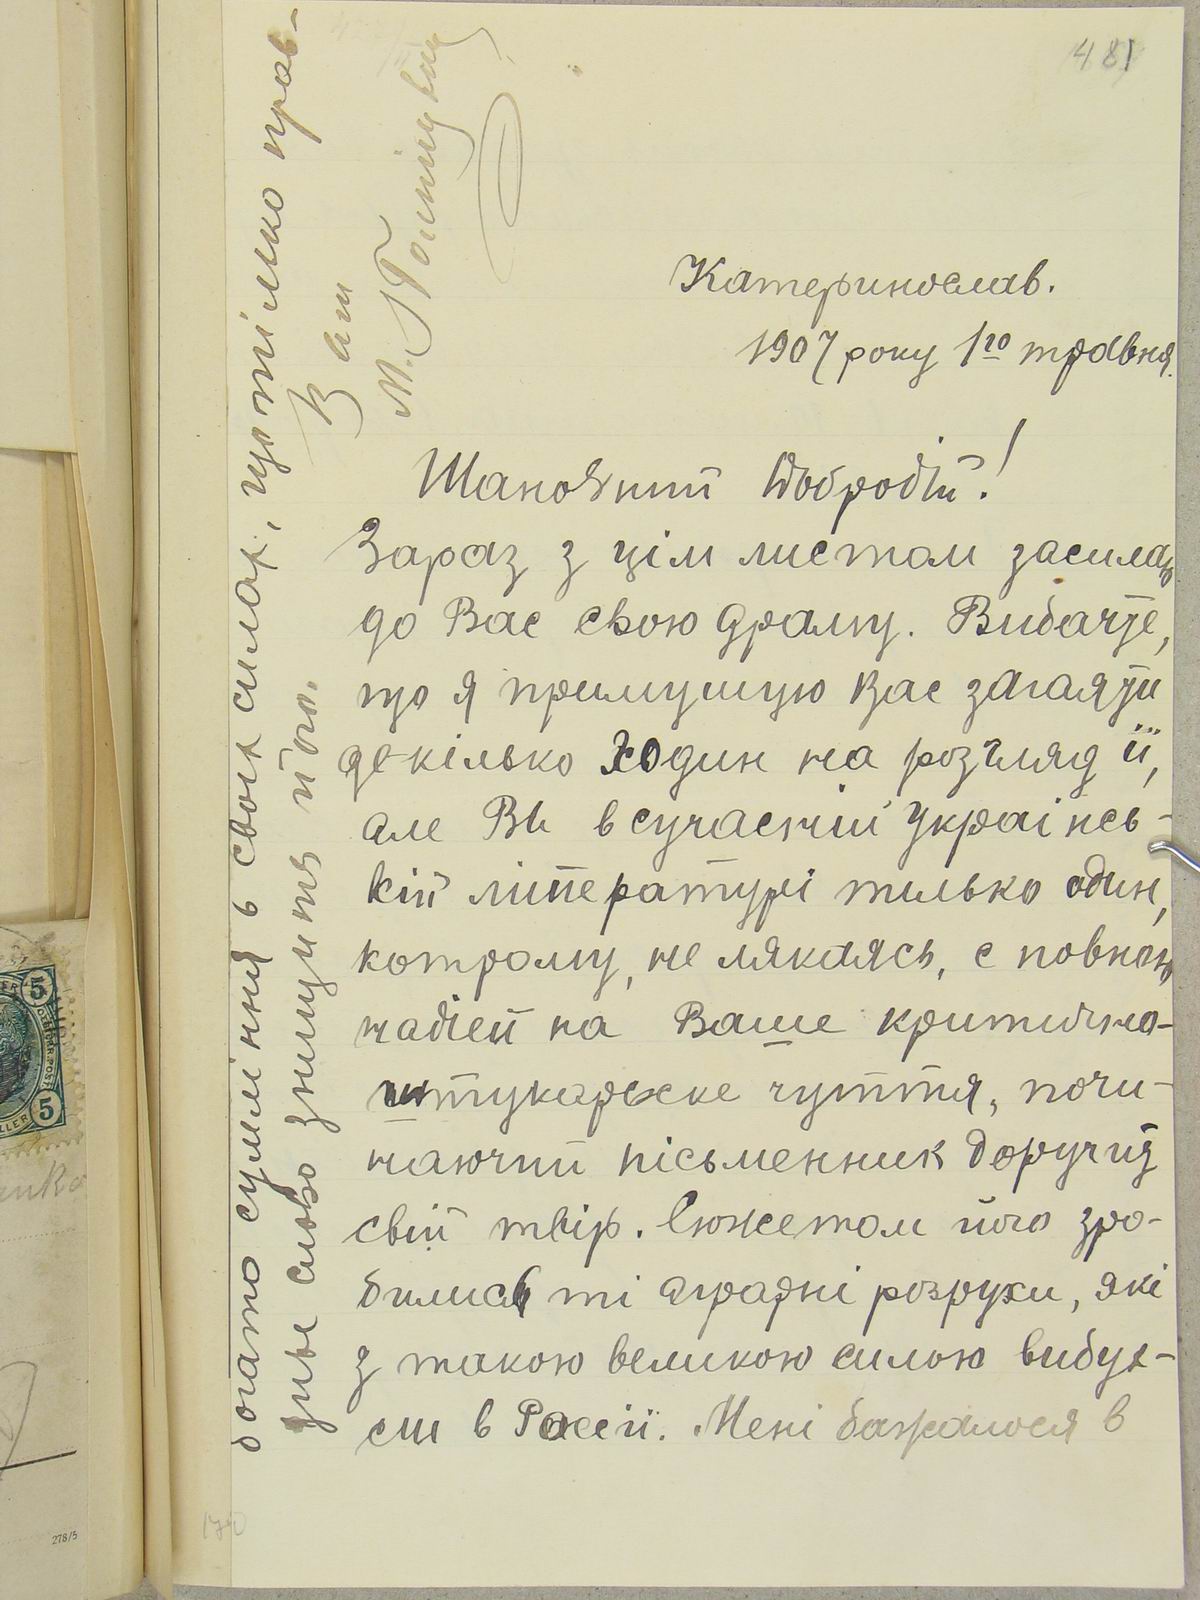 481
Катеринослав.
1907 року 1го травня.
Шановний Добродій!
Зараз з цім листом засилаю
до Вас свою драму. Вибачте,
що я примушую Вас загаяти
декілько годин на розгляд її,
але Ви в сучасній Украінсь-
кій літературі тилько один,
котрому, не лякаясь, с повною
надіей на Ваше критично-
штукарське чуття, почи-
наючий пісьменник доручить
свій твір. Сюжетом його зро-
бились ті аграрні розрухи, які
з такою великою силою вибух-
єли в Росеії. Мені бажалося в
богато сумління в своіх силах, що тілько прав-
диве слово знищить його.
Ваш
М.
5
5
278/5
170